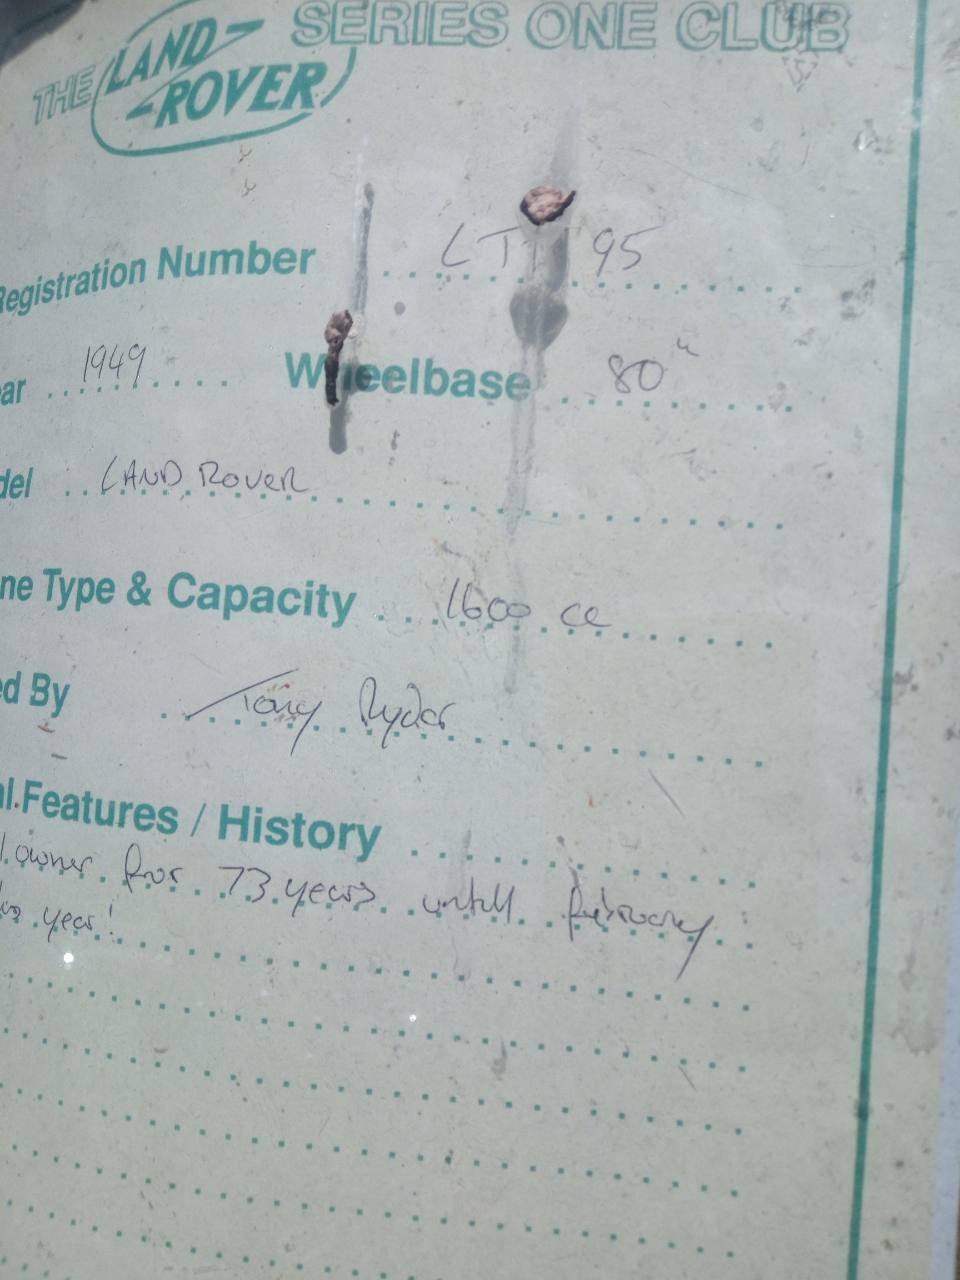 THE LAND ROVER SERIES ONE CLUB
Registration Number 95
ar 1949 Wheelbase 80"
del LAND ROVER
ne Type & Capacity 1600 cc
ed By Tony Ryder
al Features / History
owner for 73 years untill february
year!